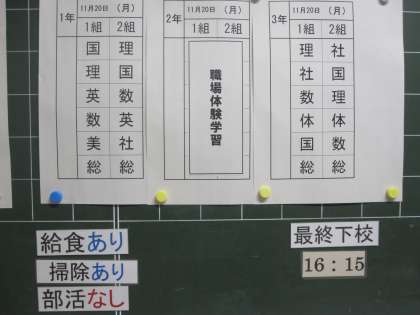 1年 11月20日 (月)
1組 2組
国 理
理 国
英 数
数 英
美 社
総 総
2年 11月20日 (月)
1組 2組
職場体験学習
3年 11月20日 (月)
1組 2組
理 社
社 国
数 理
体 体
国 数
総 総
給食あり
掃除あり
部活なし
最終下校
16:15